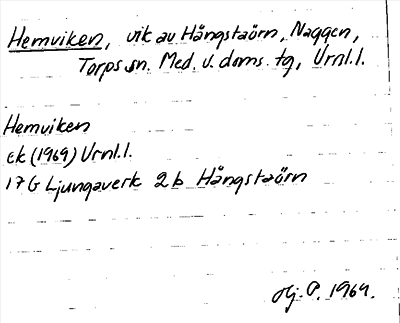 Hemviken, vik av Hångstaörn, Naggen,
Torps sn. Med. v. doms. tg, Urnl.l.
Hemviken
ek (1969) Urnl.l.
17G Ljungaverk 2b Hångstaörn
Hj. P. 1969.